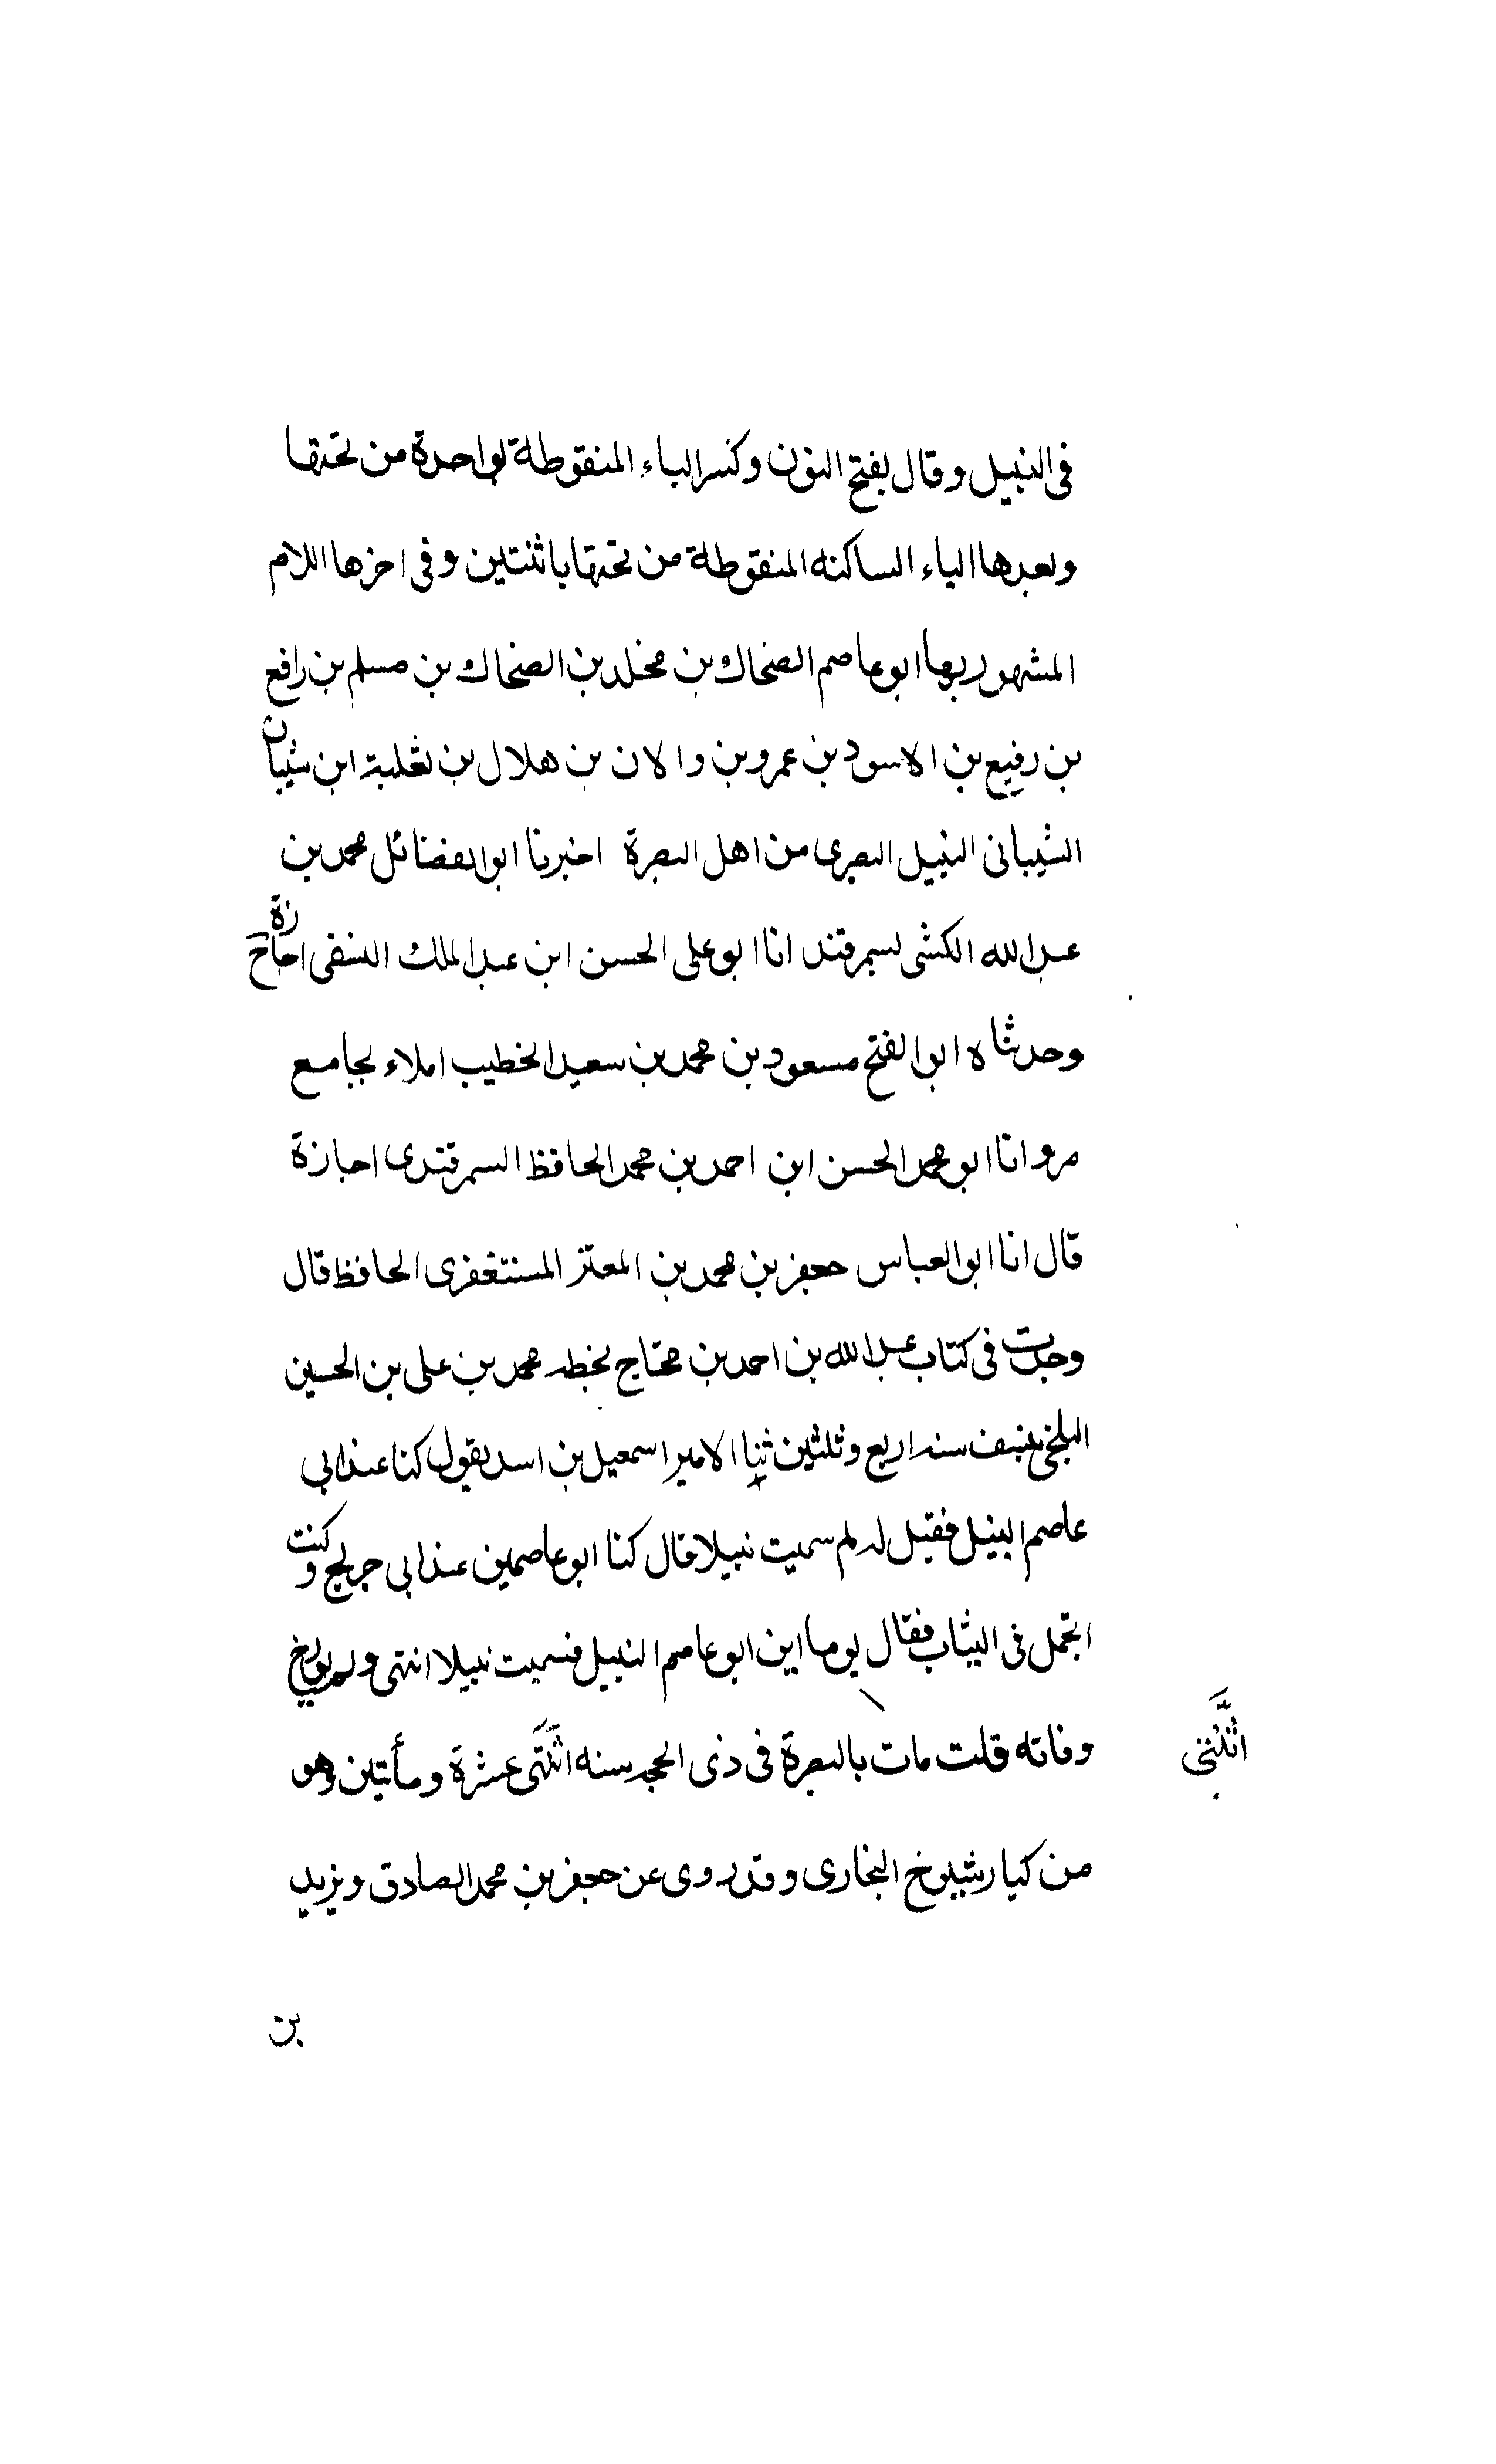 فى النبيل وقال بفتح النون وكسر الباء المنقوطة بواحدة من تحتها
وبعدها الياء الساكنه المنقوطة من تحتها باثنتين وفى اخرها اللام
المشهور بها ابو عاصم الضحاك بن مخلد بن الضحاك بن مسلم بن رافع
بن رفيع بن الاسود بن عمرو بن والان بن هلال بن ثعلبة ابن شيبان
الشيبانى النبيل البصرى من اهل البصرة اخبرنا ابو الفضائل محمد بن
عبد الله الكشى بسمرقند انا ابو على الحسن ابن عبد الملك النسفى اجازة ح
وحدثناه ابو الفتح مسعود بن محمد بن سعيد الخطيب املاء بجامع
مرو انا ابو محمد الحسن ابن احمد بن محمد الحافظ السمرقندى اجازة
قال انا ابو العباس جعفر بن محمد بن المعتز المستغفرى الحافظ قال
وجدت فى كتاب عبد الله بن احمد بن محتاج بخطه محمد بن على بن الحسين
البلخى بنسف سنه اربع وثلثين ثنا الامير اسمعيل بن اسد يقول كنا عند ابى
عاصم النبيل فقيل له لم سميت نبيلا قال كنا ابو عاصمين عند ابى جريج وكنت
اتجمل فى الثياب فقال يوما اين ابو عاصم النبيل فسميت نبيلا انتهى ولم يورخ
وفاته قلت مات بالبصرة فى ذى الحجه سنه اثنتى عشرة ومأتين وهو
اثنتى
من كبار شيوخ البخارى وقد روى عن جعفر بن محمد الصادق ويزيد
بن